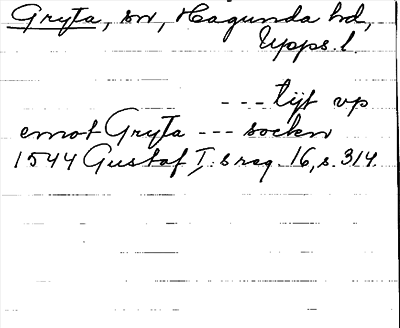 Gryta, sn, Hagunda hd,
Upps. l.
--- tijt vp
emot Gryta --- sockn
1544 Gustaf I:s reg. 16, s. 314.